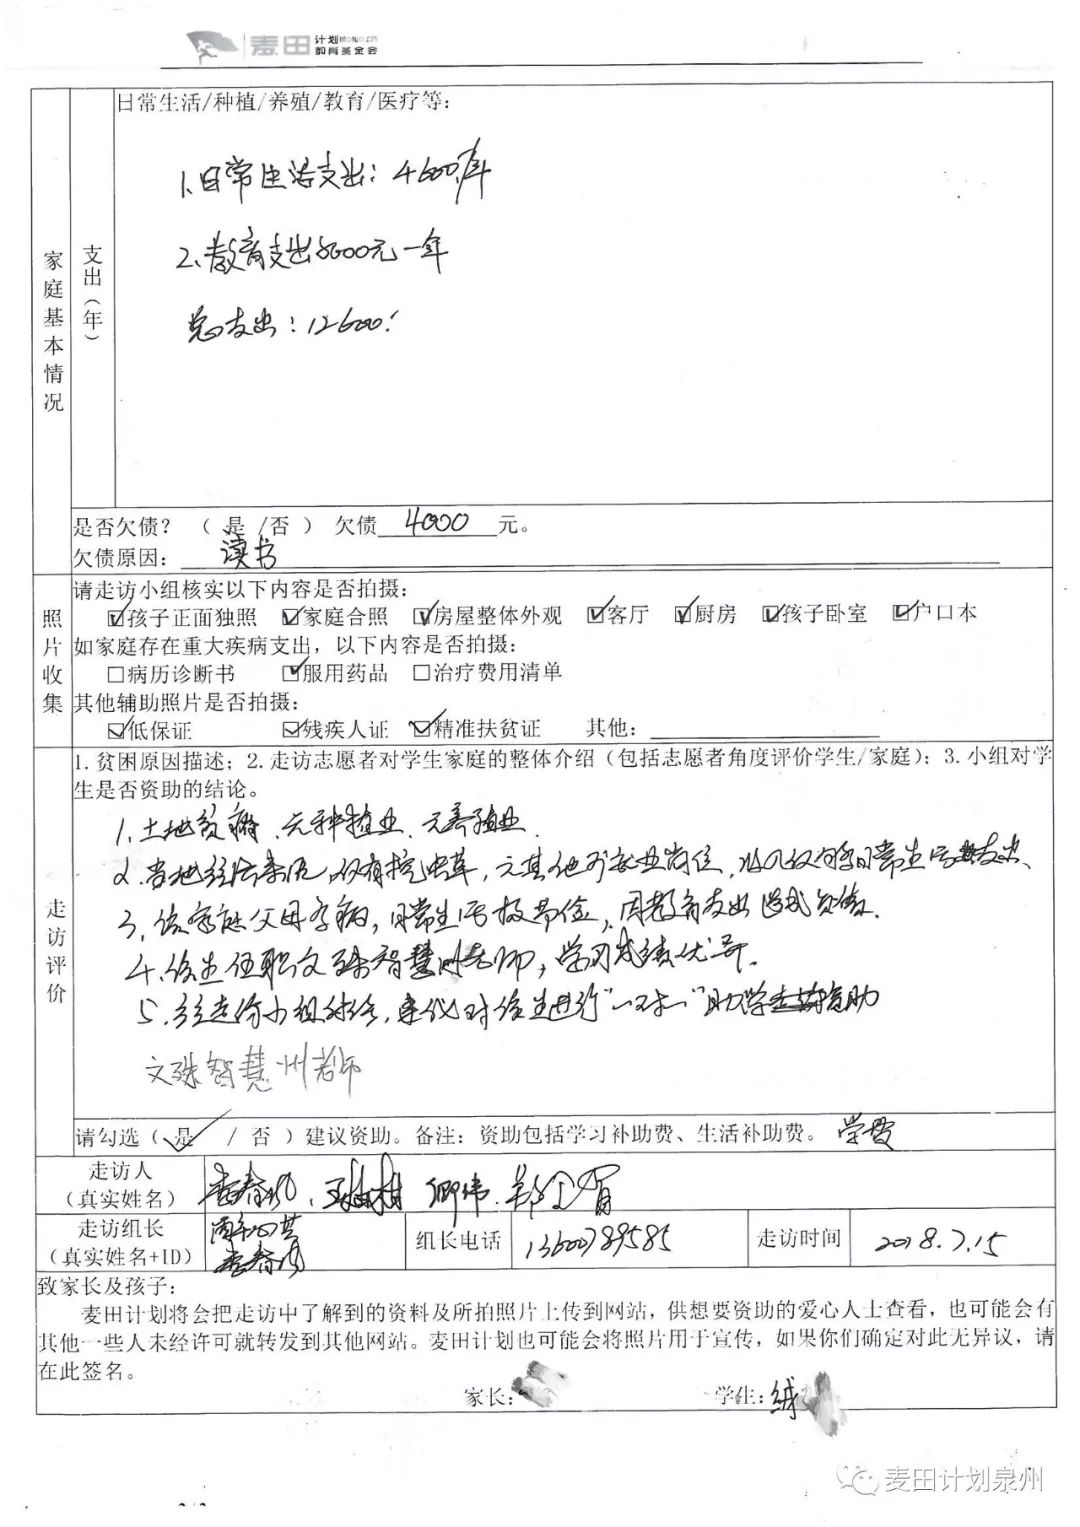 麦田 计划
教育基金会
日常生活/种植/养殖/教育/医疗等：
1.日常生活支出：4600/年
2.教育支出8000元一年
总支出：12600！
家庭基本情况
支出（年）
是否欠债？（是/否）欠债 4000 元。
欠债原因：读书
照片收集
请走访小组核实以下内容是否拍摄：
☑孩子正面独照 ☑家庭合照 ☑房屋整体外观 ☑客厅 ☑厨房 ☑孩子卧室 ☑户口本
如家庭存在重大疾病支出，以下内容是否拍摄：
□病历诊断书 ☑服用药品 □治疗费用清单
其他辅助照片是否拍摄：
☑低保证 ☑残疾人证 ☑精准扶贫证 其他：
走访评价
1.贫困原因描述；2.走访志愿者对学生家庭的整体介绍（包括志愿者角度评价学生/家庭）；3.小组对学
生是否资助的结论。
1.土地贫瘠、无种植业、无养殖业
2.当地经济来源，仅有挖虫草，无其他可就业岗位，收入仅够日常生活支出、
3.该家庭父母多病，日常生活极节俭，因教育支出造成负债.
4.该生任职文殊智慧州老师，学习成绩优异.
5.经走访小组结合，对该生进行“一对一”助学资助
文殊智慧州老师
请勾选（是 / 否）建议资助。备注：资助包括学习补助费、生活补助费。 学费
走访人
（真实姓名）
李春 卿伟
走访组长
（真实姓名+ID）
李春
组长电话 13600789585
走访时间 2018.7.15
致家长及孩子：
麦田计划将会把走访中了解到的资料及所拍照片上传到网站，供想要资助的爱心人士查看，也可能会有
其他一些人未经许可就转发到其他网站。麦田计划也可能会将照片用于宣传，如果你们确定对此无异议，请
在此签名。
家长： 学生：绒
麦田计划泉州